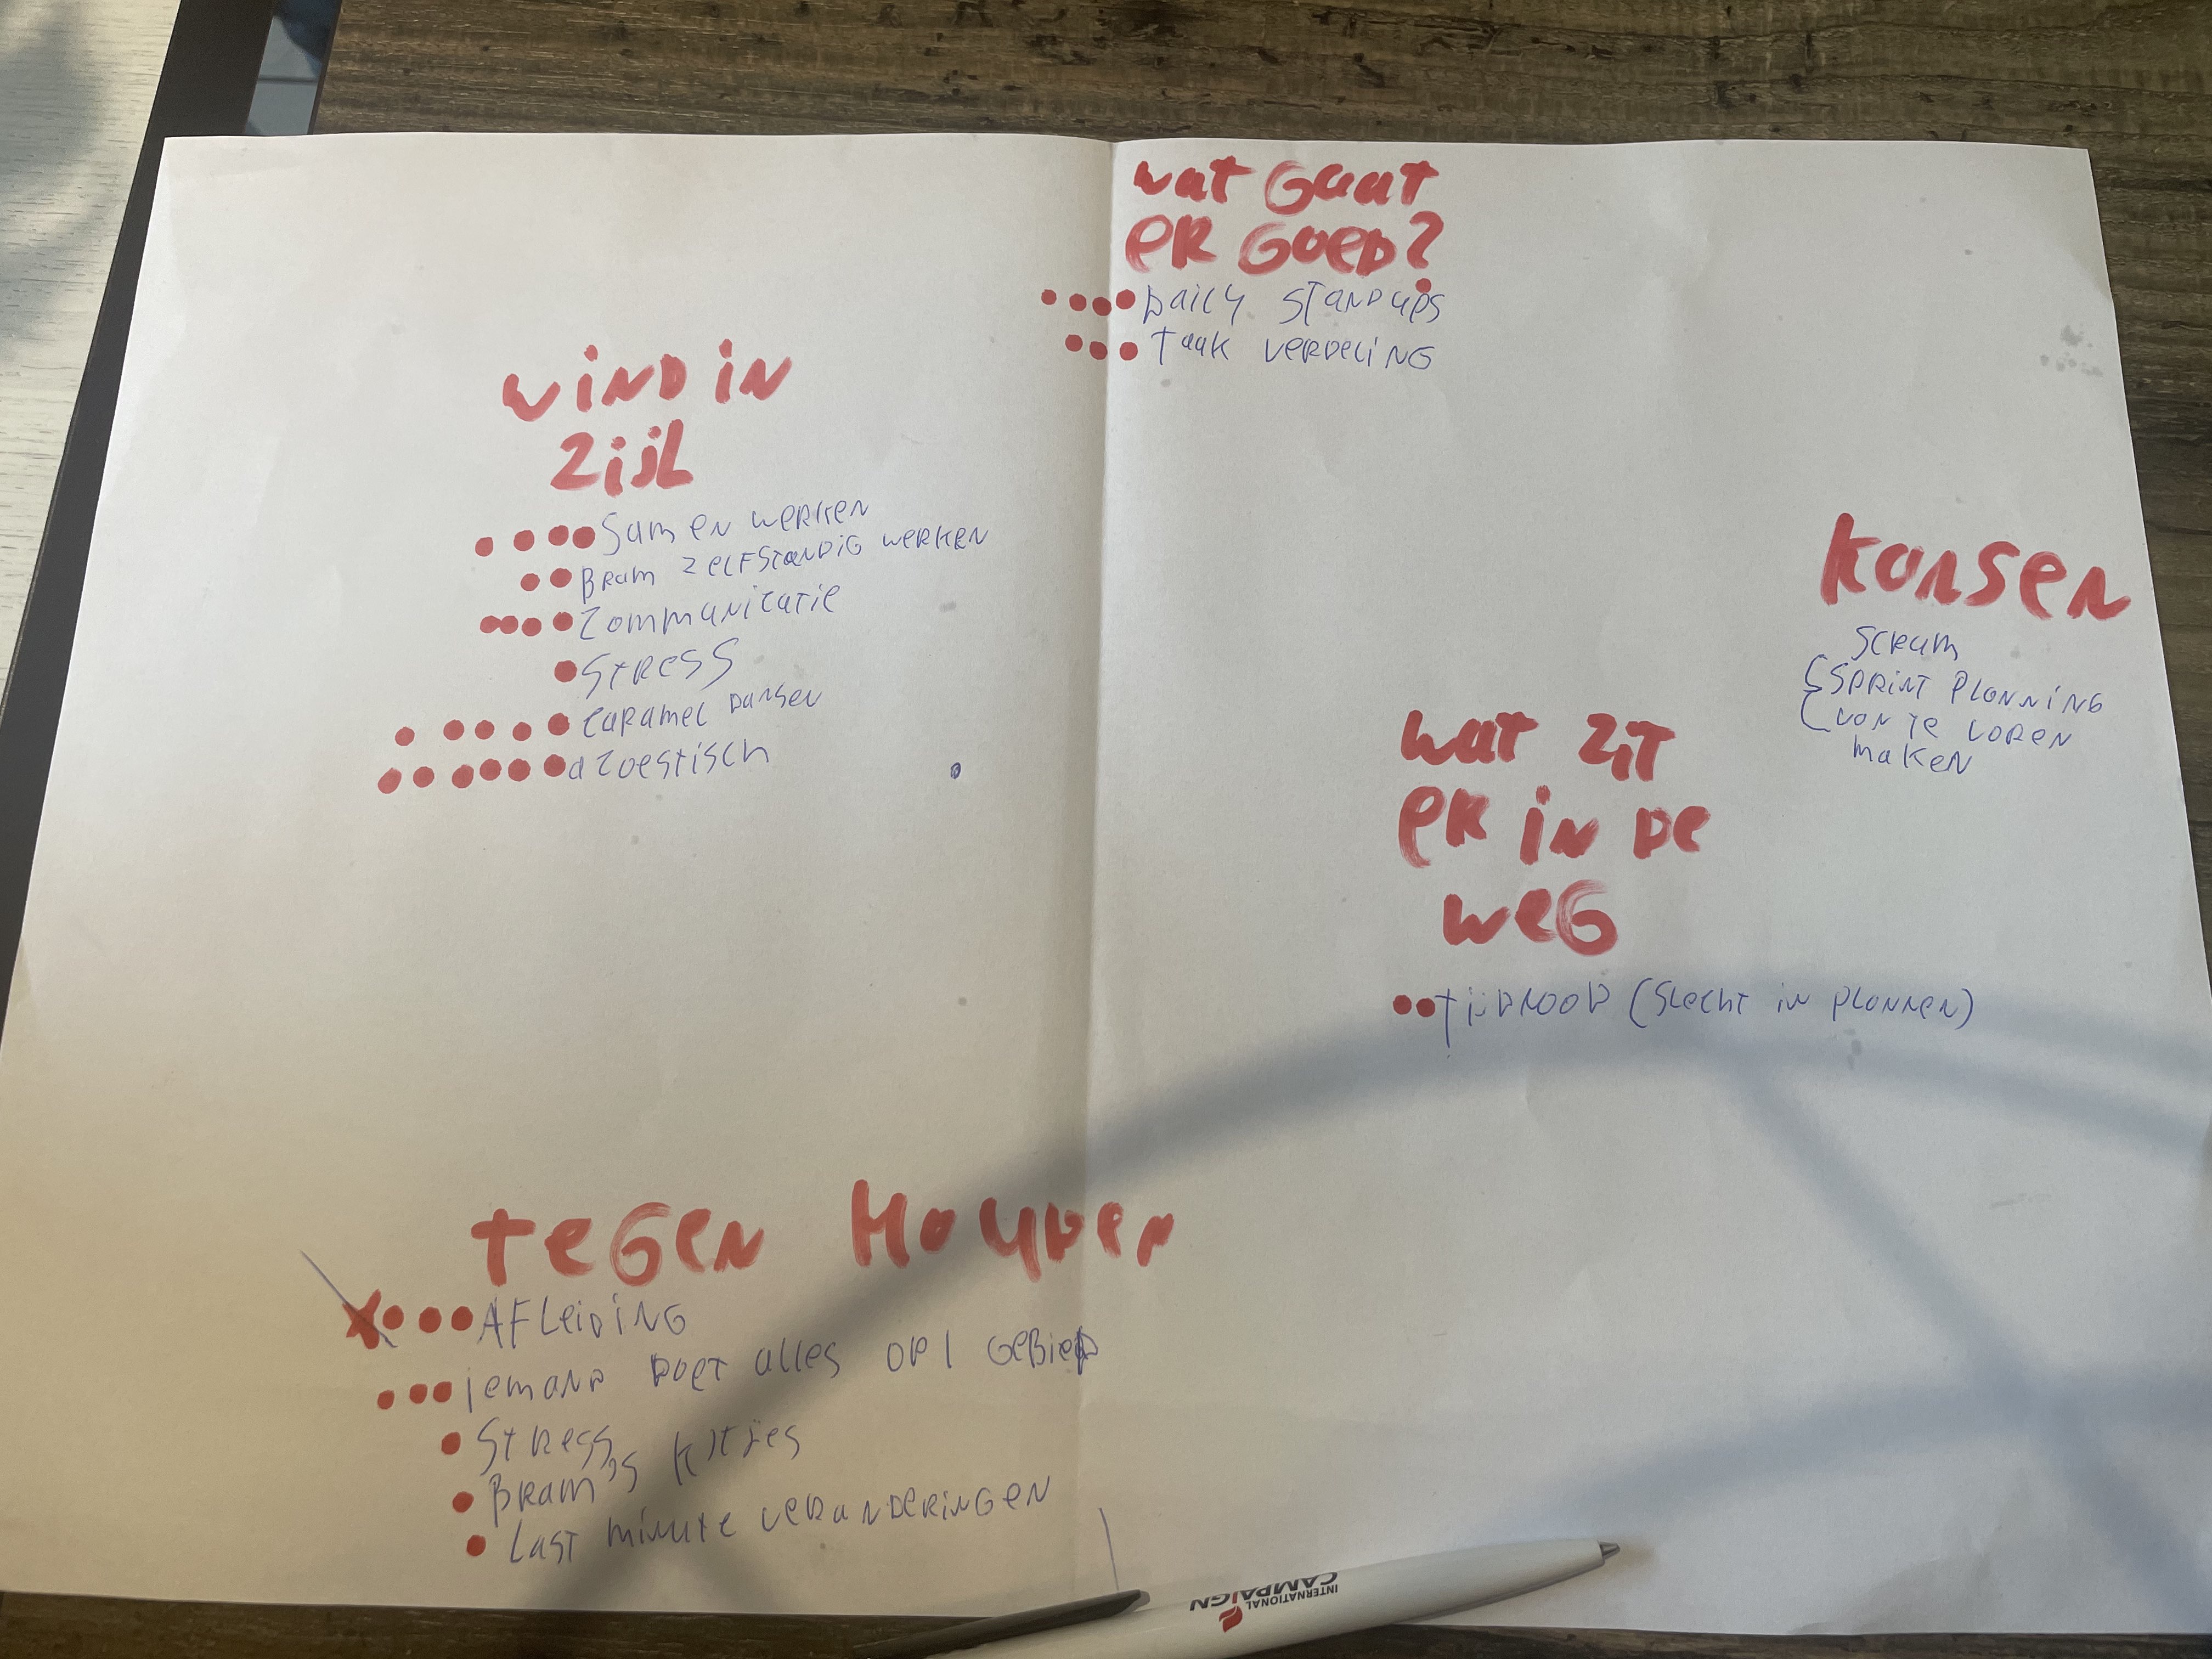 wat Gaat
eR GoeD?
Daily STanDups
Taak verDeliNG
wiND iN
Zijl
Samen werken
Bram zelfstanDiG werken
Communicatie
StRess
Caramel Dansen
acoestisch
kansen
Scrum
SpRiNT PlanniNG
van te voren
maken
wat ZiT
eR iN De
weG
tijDnooD (Slecht in plannen)
teGen HouDen
AFleiDiNG
iemanD Doet alles op 1 GeBieD
StRess
Bram's kitjes
Last minute veranDeRinGen
INTERNATIONAL
CAMPAIGN